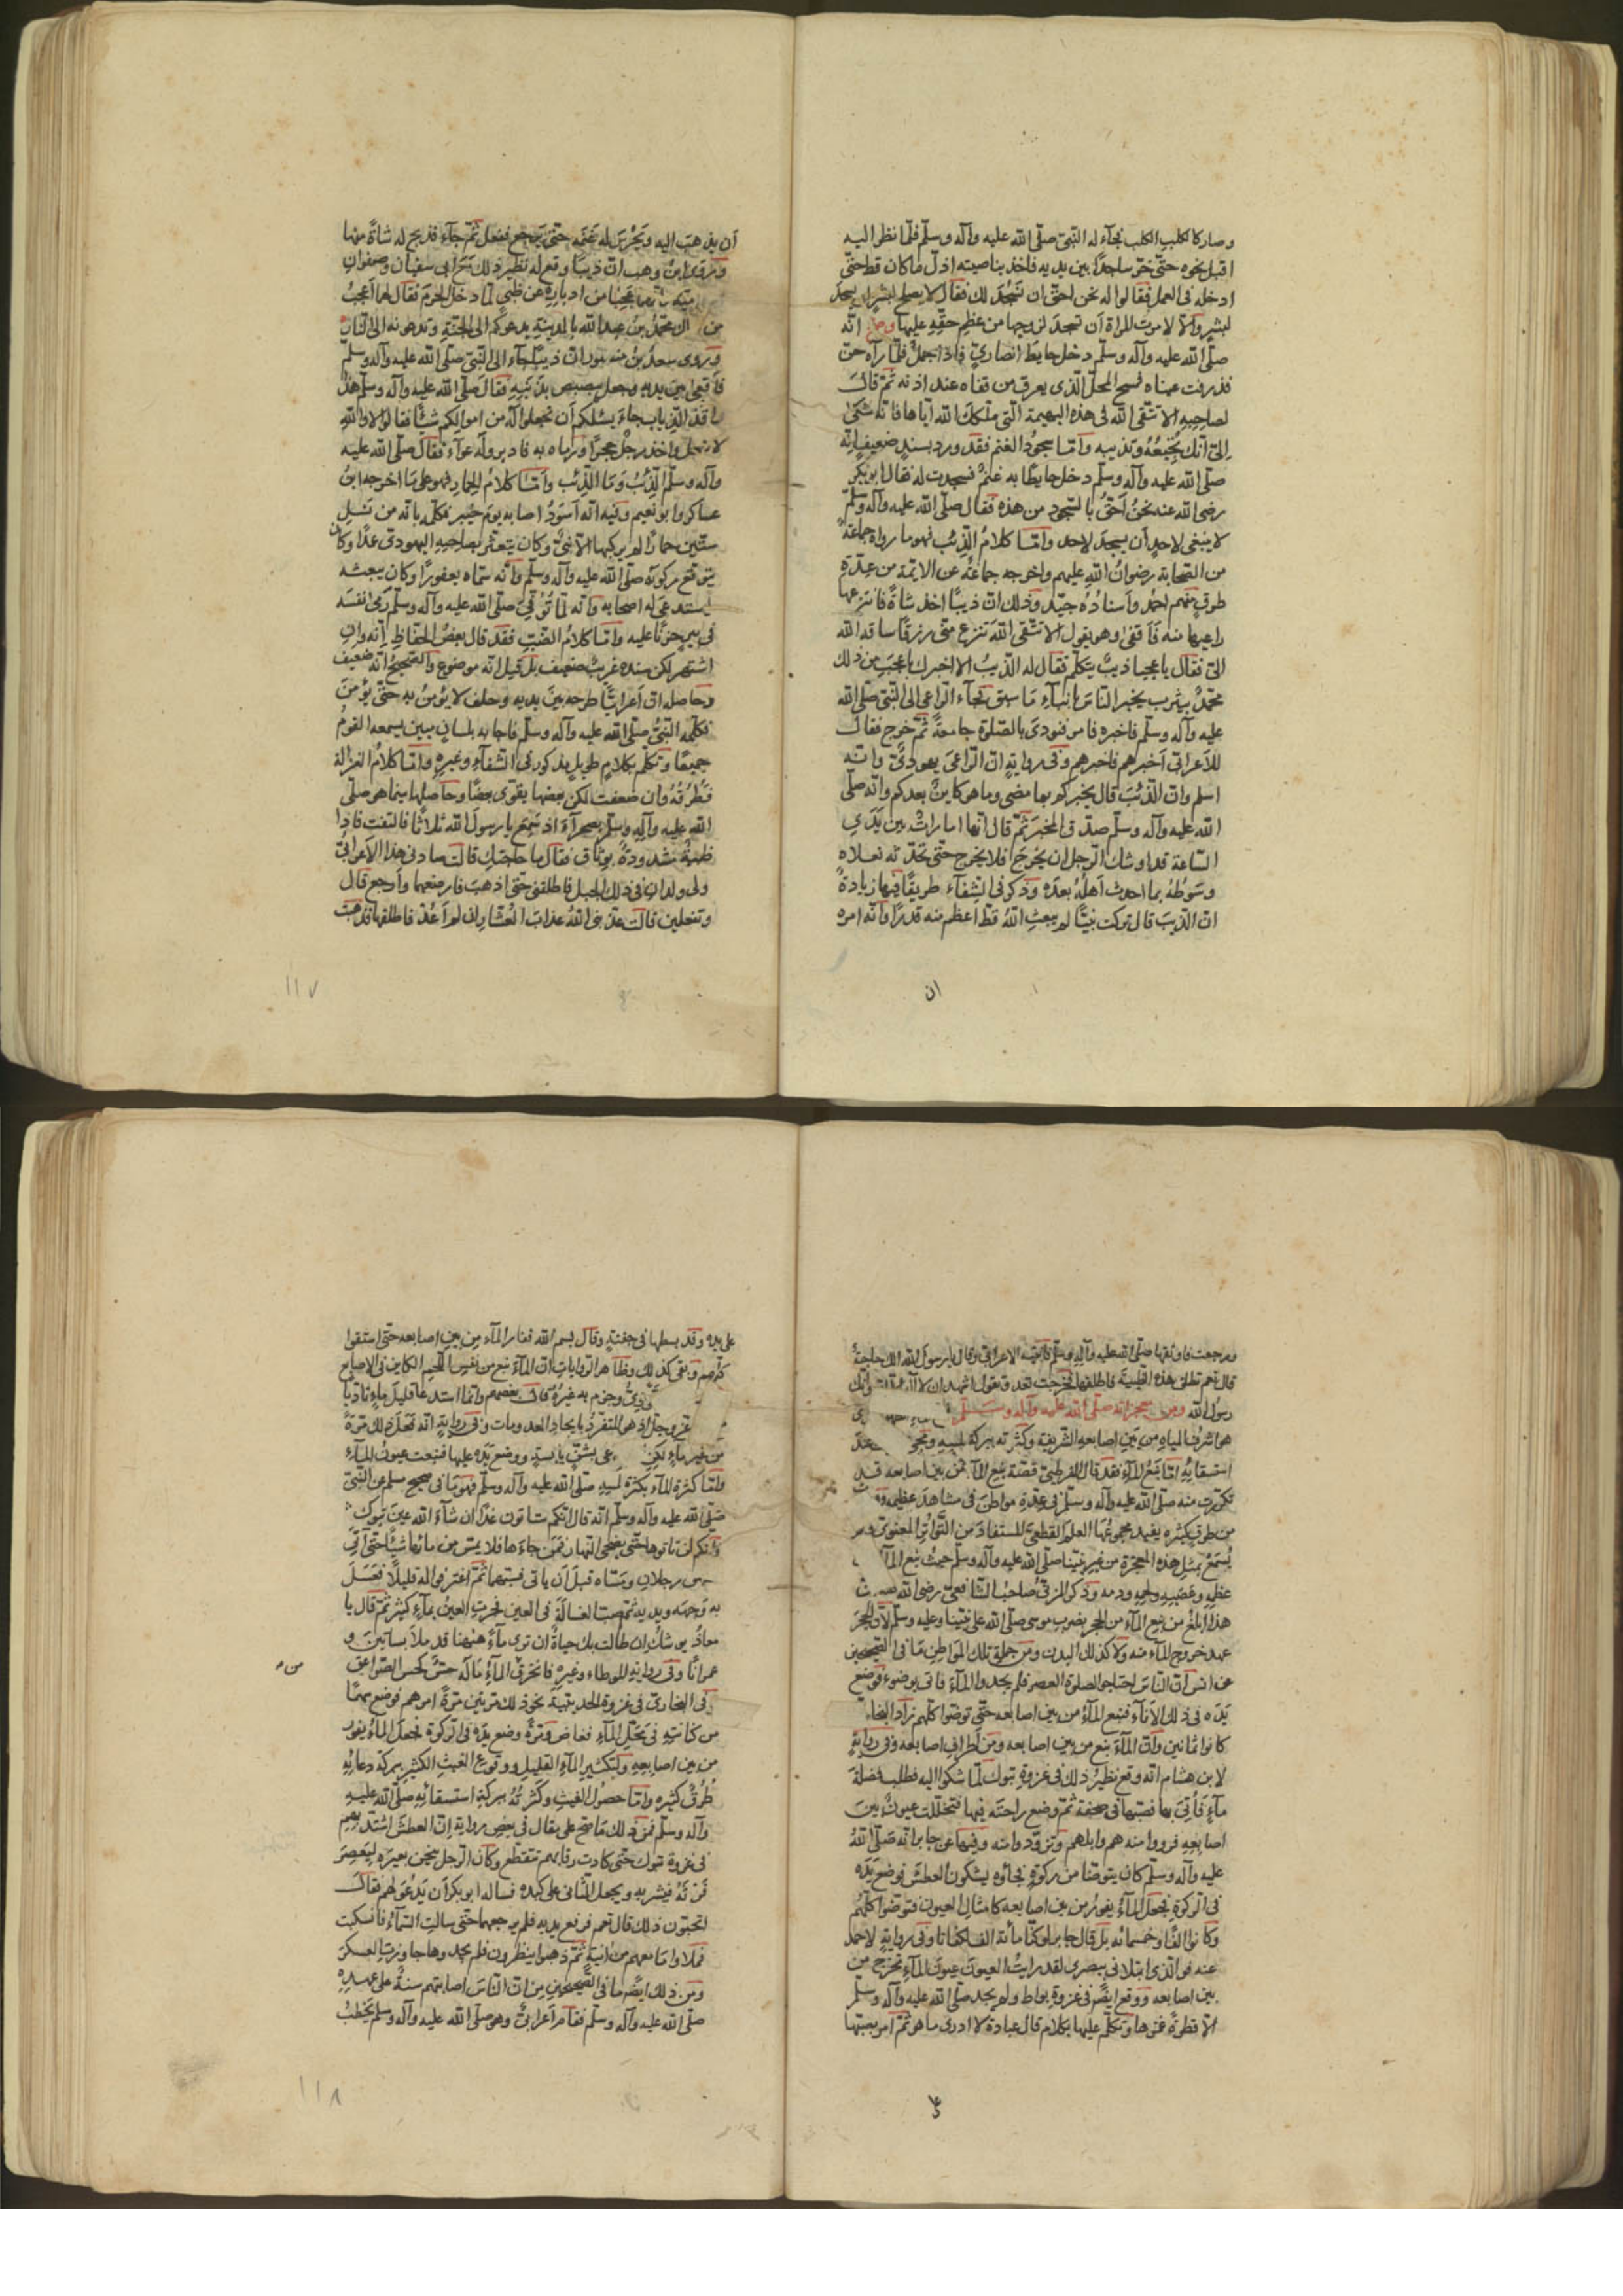 وصار كالكلب الكلب فجآء له النبىّ صلّى الله عليه وآله وسلّم فلمّا نظر اليه
اقبل نحوه حتّى خرّ ساجدًا بين يديه فاخذ بناصيته اذلّ ما كان قط حتّى
ادخله فى العمل فقالوا له نحن احقّ ان نسجد لك فقال لا يصلح لبشر ان يسجد
لبشر والّا لامرت المراة أن تسجد لزوجها من عظم حقّه عليها وصحّ انّه
صلّى الله عليه وآله وسلّم دخل حايط انصارىّ فاذا جمل فلمّا رآه حنّ
فذرفت عيناه فمسح المحلّ الّذى يعرق من قفاه عند اذنه ثمّ قال
لصاحبه الا تتّقى الله فى هذه البهيمة الّتى ملّكك الله ايّاها فانّه شكى
الىّ انّك تجيعه وتذيبه وامّا سجود الغنم فقد ورد بسند ضعيف انّه
صلّى الله عليه وآله وسلّم دخل حايطًا به غنم فسجدت له فقال ابو بكر
رضى الله عنه نحن احقّ بالسّجود من هذه فقال صلّى الله عليه وآله وسلّم
لا ينبغى لاحد أن يسجد لاحد وامّا كلام الذّئب فهو ما رواه جماعة
من الصّحابة رضوان الله عليهم واخرجه جماعة عن الايمّة من عدّة
طرق منهم احمد وأسناده جيّد وذلك انّ ذيبًا اخذ شاة فانتزعها
راعيها منه فأقعى وهو يقول الا تتّقى الله تنزع منّى رزقًا ساقه الله
الىّ فقال يا عجبا ذيب يتكلّم فقال له الذّيب الا اخبرك باعجب من ذلك
محمّد بيثرب يخبر النّاس بانبآء ما سبق فجآء الرّاعى الى النّبىّ صلّى الله
عليه وآله وسلّم فاخبره فامر فنودى بالصّلوة جامعة ثمّ خرج فقال
للأعرابىّ أخبرهم فاخبرهم وفى رواية انّ الرّاعى يهودىّ وانّه
اسلم وانّ الذّئب قال يخبركم بما مضى وما هو كاين بعدكم وانّه صلّى
الله عليه وآله وسلّم صدّق المخبر ثمّ قال انّها امارات بين يدى
السّاعة قد اوشك الرّجل ان يخرج فلا يخرج حتّى تحدّثه نعلاه
وسوطه بما احدث أهله بعده وذكر فى الشفآء طريقًا فيها زيادة
انّ الذّيب قال تركت نبيًّا لم يبعث الله قطّ اعظم منه قدرًا وانّه امره
ان
أن يذهب اليه ويحرس له غنمه حتى يرجع ففعل ثمّ جآء فذبح له شاة منها
وروى ابن وهب انّ ذيبًا وقع له نظير ذلك مع ابى سفيان وصفوان
عجبا من ادباره عن ظبى لمّا دخل الحرم فقال لهما اعجب
من ذلك محمّد بن عبد الله بالمدينة يدعوكم الى الجنّة وتدعونه الى النّار
وروى سعد بن منصور انّ ذيبًا جاء الى النبىّ صلّى الله عليه وآله وسلّم
فأقعى بين يديه وجعل يبصبص بذنبه فقال صلّى الله عليه وآله وسلّم هذا
وافد الذّياب جاء يسئلكم أن تجعلوا له من اموالكم شيئًا فقالوا لا والله
لا نجعل واخذ رجل حجرًا ورماه به فادبر وله عوآء فقال صلّى الله عليه
وآله وسلّم الذّئب وما الذّئب وامّا كلام الحمار فهو على ما اخرجه ابن
عساكر وابو نعيم وفيه انّه أسود اصابه يوم خيبر فكلّمه بانّه من نسل
ستّين حمارًا لم يركبها الّا نبىّ وكان يتعثّر بصاحبه اليهودىّ عمدًا وكان
يتوقّع ركوبه صلّى الله عليه وآله وسلّم وأنّه سمّاه يعفورًا وكان يبعثه
يستدعى له اصحابه وانّه لمّا توفّى صلّى الله عليه وآله وسلّم رمى نفسه
فى بير حزنًا عليه وامّا كلام الضّبّ فقد قال بعض الحفّاظ انّه وان
اشتهر لكن سنده غريب ضعيف بل قيل انّه موضوع والصّحيح انّه ضعيف
وحاصله انّ أعرابيًّا طرحه بين يديه وحلف لا يؤمن به حتّى يؤمن
فكلّمه النّبىّ صلّى الله عليه وآله وسلّم فاجابه بلسان مبين يسمعه القوم
جميعًا وتكلّم بكلام طويل مذكور فى الشّفآء وغيره وامّا كلام الغزالة
فطرقه وان ضعفت لكن بعضها يقوّى بعضًا وحاصلها بينما هو صلّى
الله عليه وآله وسلّم بصحرآء اذ سمع يا رسول الله ثلاثًا فالتفت فاذا
ظبية مشدودة بوثاق فقال ما حاجتك قالت صادنى هذا الأعرابىّ
ولى ولدان فى ذلك الجبل فاطلقنى حتى اذهب فارضعهما وارجع قال
وتفعلين قالت عذّبنى الله عذاب العشّار ان لم أعد فاطلقها فذهبت
١١٧
ورجعت فاوثقها صلّى الله عليه وآله وسلّم فانتبه الاعرابى وقال يا رسول الله الك حاجة
قال نعم تطلق هذه الظبية فاطلقها فخرجت تعدو تقول اشهد ان لا اله الا الله وانّك
رسول الله ومن معجزاته صلّى الله عليه وآله وسلّم
استسقائه امّا نبع المآء فقد قال القرطبىّ قصّة نبع المآء من بين اصابعه قد
تكرّرت منه صلّى الله عليه وآله وسلّم فى عدّة مواطن فى مشاهد عظيمة
من طرق كثيره يفيد مجموعها العلم القطعىّ المستفاد من التّواتر المعنوىّ ولم
يسمع بمثل هذه المعجزة من غير نبيّنا صلّى الله عليه وآله وسلّم حيث نبع المآء
عظمه وعصبه ولحمه ودمه وذكر المزنىّ صاحب الشّافعىّ رضى الله عنه
هذا ابلغ من نبع المآء من الحجر بضرب موسى صلّى الله على نبيّنا وعليه وسلّم لأنّ الحجر
عهد خروج المآء منه ولا كذلك اليدن ومن جملة تلك المواطن ما فى الصّحيحين
عن انس انّ النّاس احتاجوا لصلوة العصر فلم يجدوا المآء فاتى بوضوء فوضع
يده فى ذلك الاناء فنبع المآء من بين اصابعه حتّى توضّوا كلّهم زاد البخارى
كانوا ثمانين وانّ المآء نبع من بين اصابعه ومن أطراف اصابعه وفى رواية
لابن هشام انّه وقع نظير ذلك فى غزوة تبوك لمّا شكوا اليه فطلب فضلة
مآء فأتى بها فصبّها فى صحفة ثمّ وضع راحته فيها فتخلّلت عيون بين
اصابعه فرووا منه هم وابلهم وتزوّدوا منه وفيها عن جابر انّه صلّى الله
عليه وآله وسلّم كان يتوضّا من ركوة فجاؤه يشكون العطش فوضع يده
فى الرّكوة فجعل المآء يفور من بين اصابعه كامثال العيون فتوضّوا كلّهم
وكانوا الفًا وخمسمائه بل قال جابر لو كنّا مائة الف لكفانا وفى رواية لاحمد
عنه فوالّذى ابتلانى ببصرى لقد رايت العيون عيون المآء تخرج من
بين اصابعه ووقع ايضًا فى غزوة بواط ولم يجد صلّى الله عليه وآله وسلّم
الّا قطرة غمزها وتكلّم عليها بكلام قال عبادة لا ادرى ما هو ثمّ امر بصبّها
على
على يده وقد بسطها فى جفنة وقال بسم الله ففار المآء من بين اصابعه حتّى استقوا
كلّهم وبقى كذلك وظاهر الرّوايات انّ المآء نبع من نفس اللّحم الكاين فى الاصابع
وجزم به غيره قال بعضهم وانّما استدعا قليل ماء تادّبًا
عزّ وجلّ اذ هو المتفرّد بايجاد المعدومات وفى رواية انّه فعل ذلك مرّة
من غير ماء ووضع يده عليها فنبعت عيون المآء
وامّا كثرة المآء بكثرة لمسه صلّى الله عليه وآله وسلّم فهو ما فى صحيح مسلم عن النّبىّ
صلّى الله عليه وآله وسلّم انّه قال انّكم ستاتون غدًا ان شآء الله عين تبوك
وانّكم لن تاتوها حتّى يضحى النّهار فمن جاءها فلا يمسّ من مائها شيئًا حتّى آتى
رجلان ومسّاه قبل أن ياتى فسبّهما ثمّ اغترفوا له قليلًا فغسل
به وجهه ويديه ثمّ صبّت الغسالة فى العين فجرت العين بمآء كثير ثمّ قال يا
معاذ يوشك ان طالت بك حياة ان ترى مآء هيهنا قد ملأ بساتين و
عمرانًا وفى رواية للموطاء وغيره فانخرق المآء ماله حسّ كحسّ الصّواعق
فى البخارىّ فى غزوة الحديبيّة نحو ذلك مرّتين مرّة امرهم فوضع سهمًا
من كنانته فى محلّ المآء ففاض ومرّة وضع يده فى الرّكوة فجعل المآء يفور
من بين اصابعه ولتكثير المآء القليل ووقوع الغيث الكثير ببركة دعائه
طرق كثيره وامّا حصول الغيث وكثرته ببركة استسقائه صلّى الله عليه
وآله وسلّم فمن ذلك ما صحّ على مقال فى بعض رواية انّ العطش اشتدّ بهم
فى غزوة تبوك حتّى كادت رقابهم تتقطع وكان الرّجل ينحر بعيره ليعصر
فرثه فيشربه ويجعل الثّانى على كبده فساله ابو بكر أن يدعو لهم فقال
اتحبّون ذلك قال نعم فرفع يديه فلم يرجعها حتى سالت السّمآء فانسكبت
فملاوا ما معهم من انية ثمّ ذهبوا ينظرون فلم يجدوها جاوزت العسكر
ومن ذلك ايضًا ما فى الصّحيحين من انّ النّاس اصابتهم سنة على عهده
صلّى الله عليه وآله وسلّم فقام أعرابىّ وهو صلّى الله عليه وآله وسلّم يخطب
١١٨